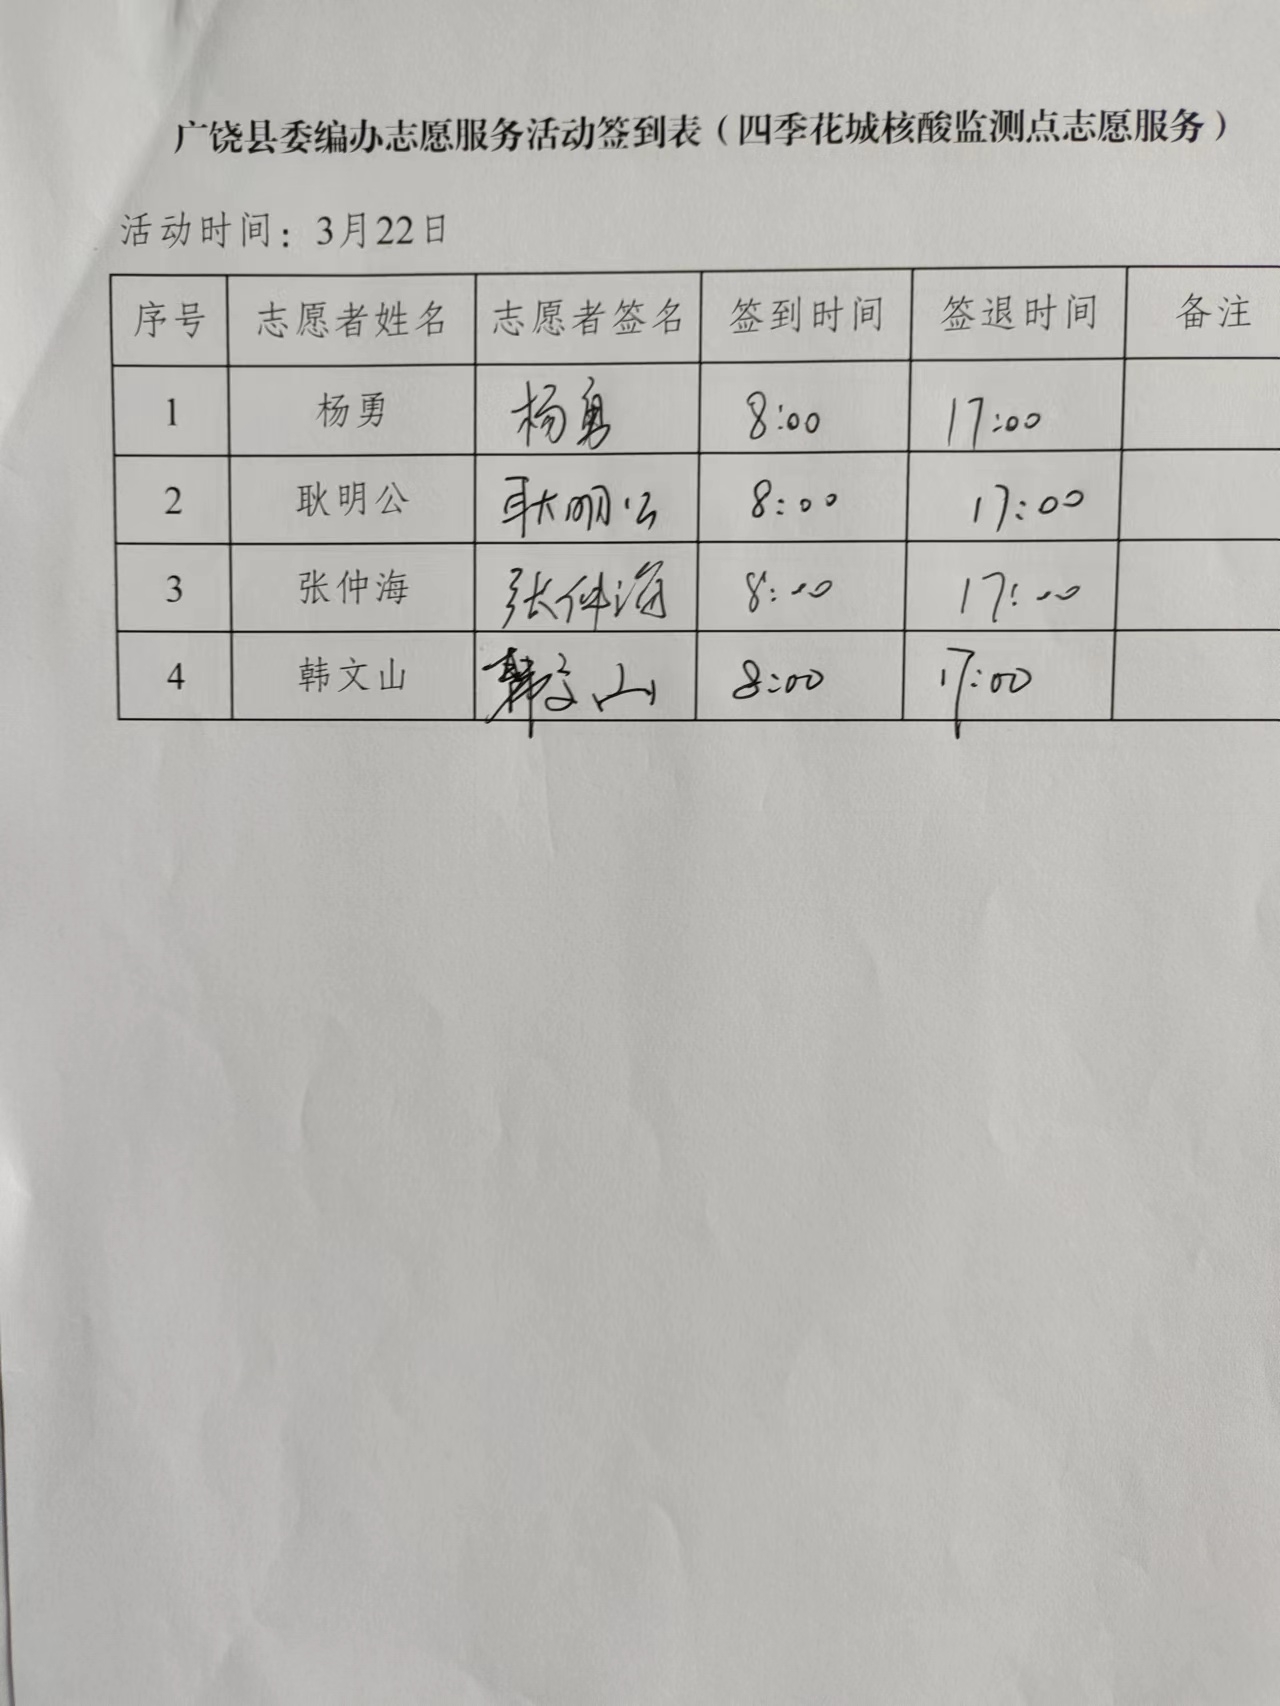 广饶县委编办志愿服务活动签到表（四季花城核酸监测点志愿服务）
活动时间：3月22日
序号 志愿者姓名 志愿者签名 签到时间 签退时间 备注
1 杨勇 杨勇 8:00 17:00
2 耿明公 耿明公 8:00 17:00
3 张仲海 张仲海 8:00 17:00
4 韩文山 韩文山 8:00 17:00